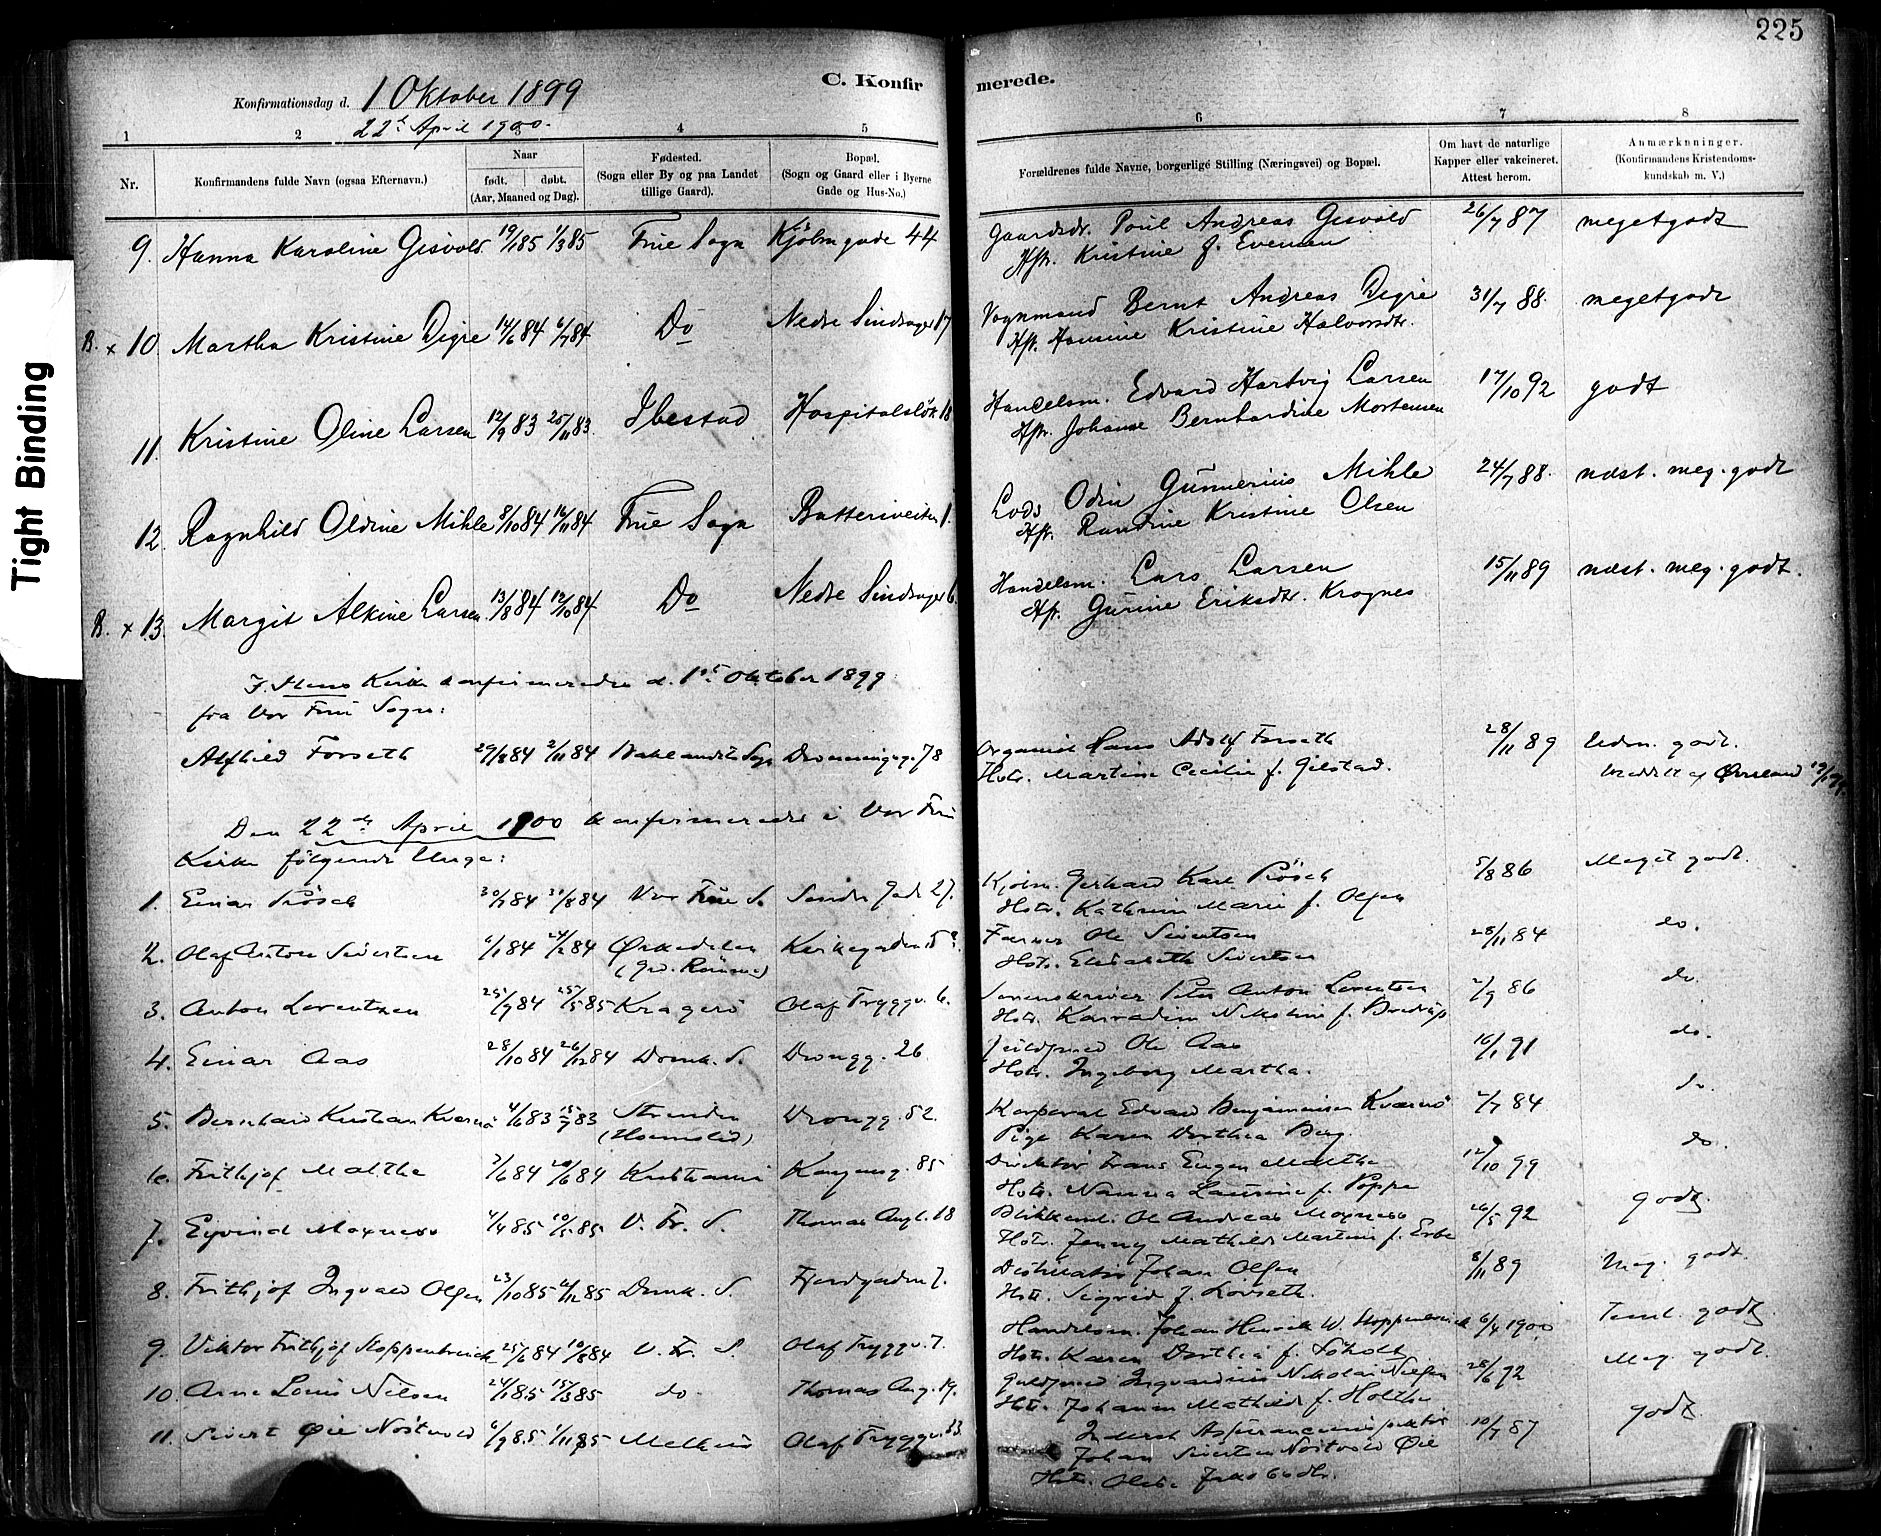 225
C. Konfirmerede.
Konfirmationsdag d. 1 Oktober 1899
22de April 1900.
1 2 3 4 5 6 7 8
Nr. Konfirmandens fulde Navn (ogsaa Efternavn.) Naar født. døbt. (Aar, Maaned og Dag). Fødested. (Sogn eller By og paa Landet tillige Gaard). Bopæl. (Sogn og Gaard eller i Byerne Gade og Hus-No.) Forældrenes fulde Navne, borgerlige Stilling (Næringsvei) og Bopæl. Om havt de naturlige Kapper eller vakcineret. Attest herom. Anmærkninger. (Konfirmandens Kristendomskundskab m. V.)
9. Hanna Karoline Gisvold 19/1 85 1/3 85 Frue Sogn Kjøbmgade 44 Gaardsdr. Poul Andreas Gisvold 26/7 87 meget godt
Hst. Kristine f. Evensen
B. x 10. Martha Kristine Digre 14/6 84 6/7 84 Do Nedre Sindsager 17 Vognmand Bernt Andreas Digre 31/7 88. meget godt
Hst. Hansine Kristine Halvorsdtr.
11. Kristine Oline Larsen 12/9 83 25/11 83. Ibestad Hospitalsløk 18 Handelsm. Edvard Hartvig Larsen 17/10 92 godt
Hst. Johanne Bernhardine Mortensen
12. Ragnhild Oldine Mihle 8/10 84 16/11 84 Frue Sogn Batteriveiten 1. Lods Odin Gunnerius Mihle 24/7 88. næst. meg. godt
Hst. Randine Kristine Olsen
B. x 13. Margit Alkine Larsen 13/8 84 12/10 84 Do Nedre Sindsager 6. Handelsm. Lars Larsen 15/11 89 næst. meg. godt.
Hst. Gurine Eriksdtr. Krognes
I Ilens Kirke konfirmeredes d. 1ste Oktober 1899
fra Vor Frue Sogn:
Alfhild Forseth 29/8 84 2/11 84 Baklandets Sogn Dronningsg. 78 Organist Hans Adolf Forseth 28/11 89 Udm. godt.
Hstr. Martine Cecilie f. Gilstad.
Den 22de April 1900 konfirmeredes i Vor Frue
Kirke følgende Unge:
1. Einar Prösch 30/7 84 31/8 84 Vor Frue S. Søndre Gade 27. Gerhard Karl Prösch 5/8 86 Meget godt.
Hstr. Kathrine Marie f. Olsen
2. Olaf Anton Sivertsen 6/1 84 24/2 84 Ørkedalen Kirkegaden Farver Ole Sivertsen 28/11 84 do.
Hstr. Elisabeth Sivertsen
3. Anton Lorentzen 25/9 84 25/5 85 Kragerø Olaf Tryggv. 6. Peter Anton Lorentzen 2/9 86 do.
4. Einar Aas 28/10 84 26/12 84 Domk. S. Drongg. 26 Ole Aas 16/1 91 do.
Hstr. Ingeborg Martha.
5. Bernhard Kristian Kværnø 4/6 83 15/7 83 Strinden Drongg. 52. Korporal Edvard Benjaminsen Kværnø 2/7 84 do.
Pige Karen Dorthea Berg.
6. Frithjof Malthe 2/6 84 Kristiania Kongensg. 85 Direktør Frans Eugen Malthe 12/10 99 do.
Hstr. Nanna Laurine f. Poppe
7. Eyvind Moxness 4/4 85 10/5 85 V. Fr. S. Thomas Angl. 18 Blikkensl. Ole Andreas Moxness 26/5 92 godt.
Hstr. Jenny Mathilde Martine f. Erbe
8. Frithjof Ingvald Olsen 23/10 85 Domk. S. Fjordgaden 7. Destillatør Johan Olsen 8/11 89 Meg. godt.
Hstr. Sigrid f. Lorseth.
9. Viktor Frithjof Hoppenbrinck 25/6 84 10/8 84 V. Fr. S. Olaf Tryggv. 7. Handelsm. Johan Henrik W. Hoppenbrinck 6/4 1900 Teml. godt.
Hstr. Karen Dorthea f. Søholt
10. Arne Louis Nilsen 24/1 85 15/3 85 do Thomas Ang. 19. Ingvardius Nikolai Nilsen 28/6 92 Meg. godt.
Hstr. Johanne Mathilde f. Holthe
11. Sivert Øie Nøstvold 6/9 85 1/11 85 Melhus Olaf Tryggv. 33 Assuranceinspektør 10/7 87 godt.
Johan Sivertsen Nøstvold Øie
Hstr.
Tight Binding